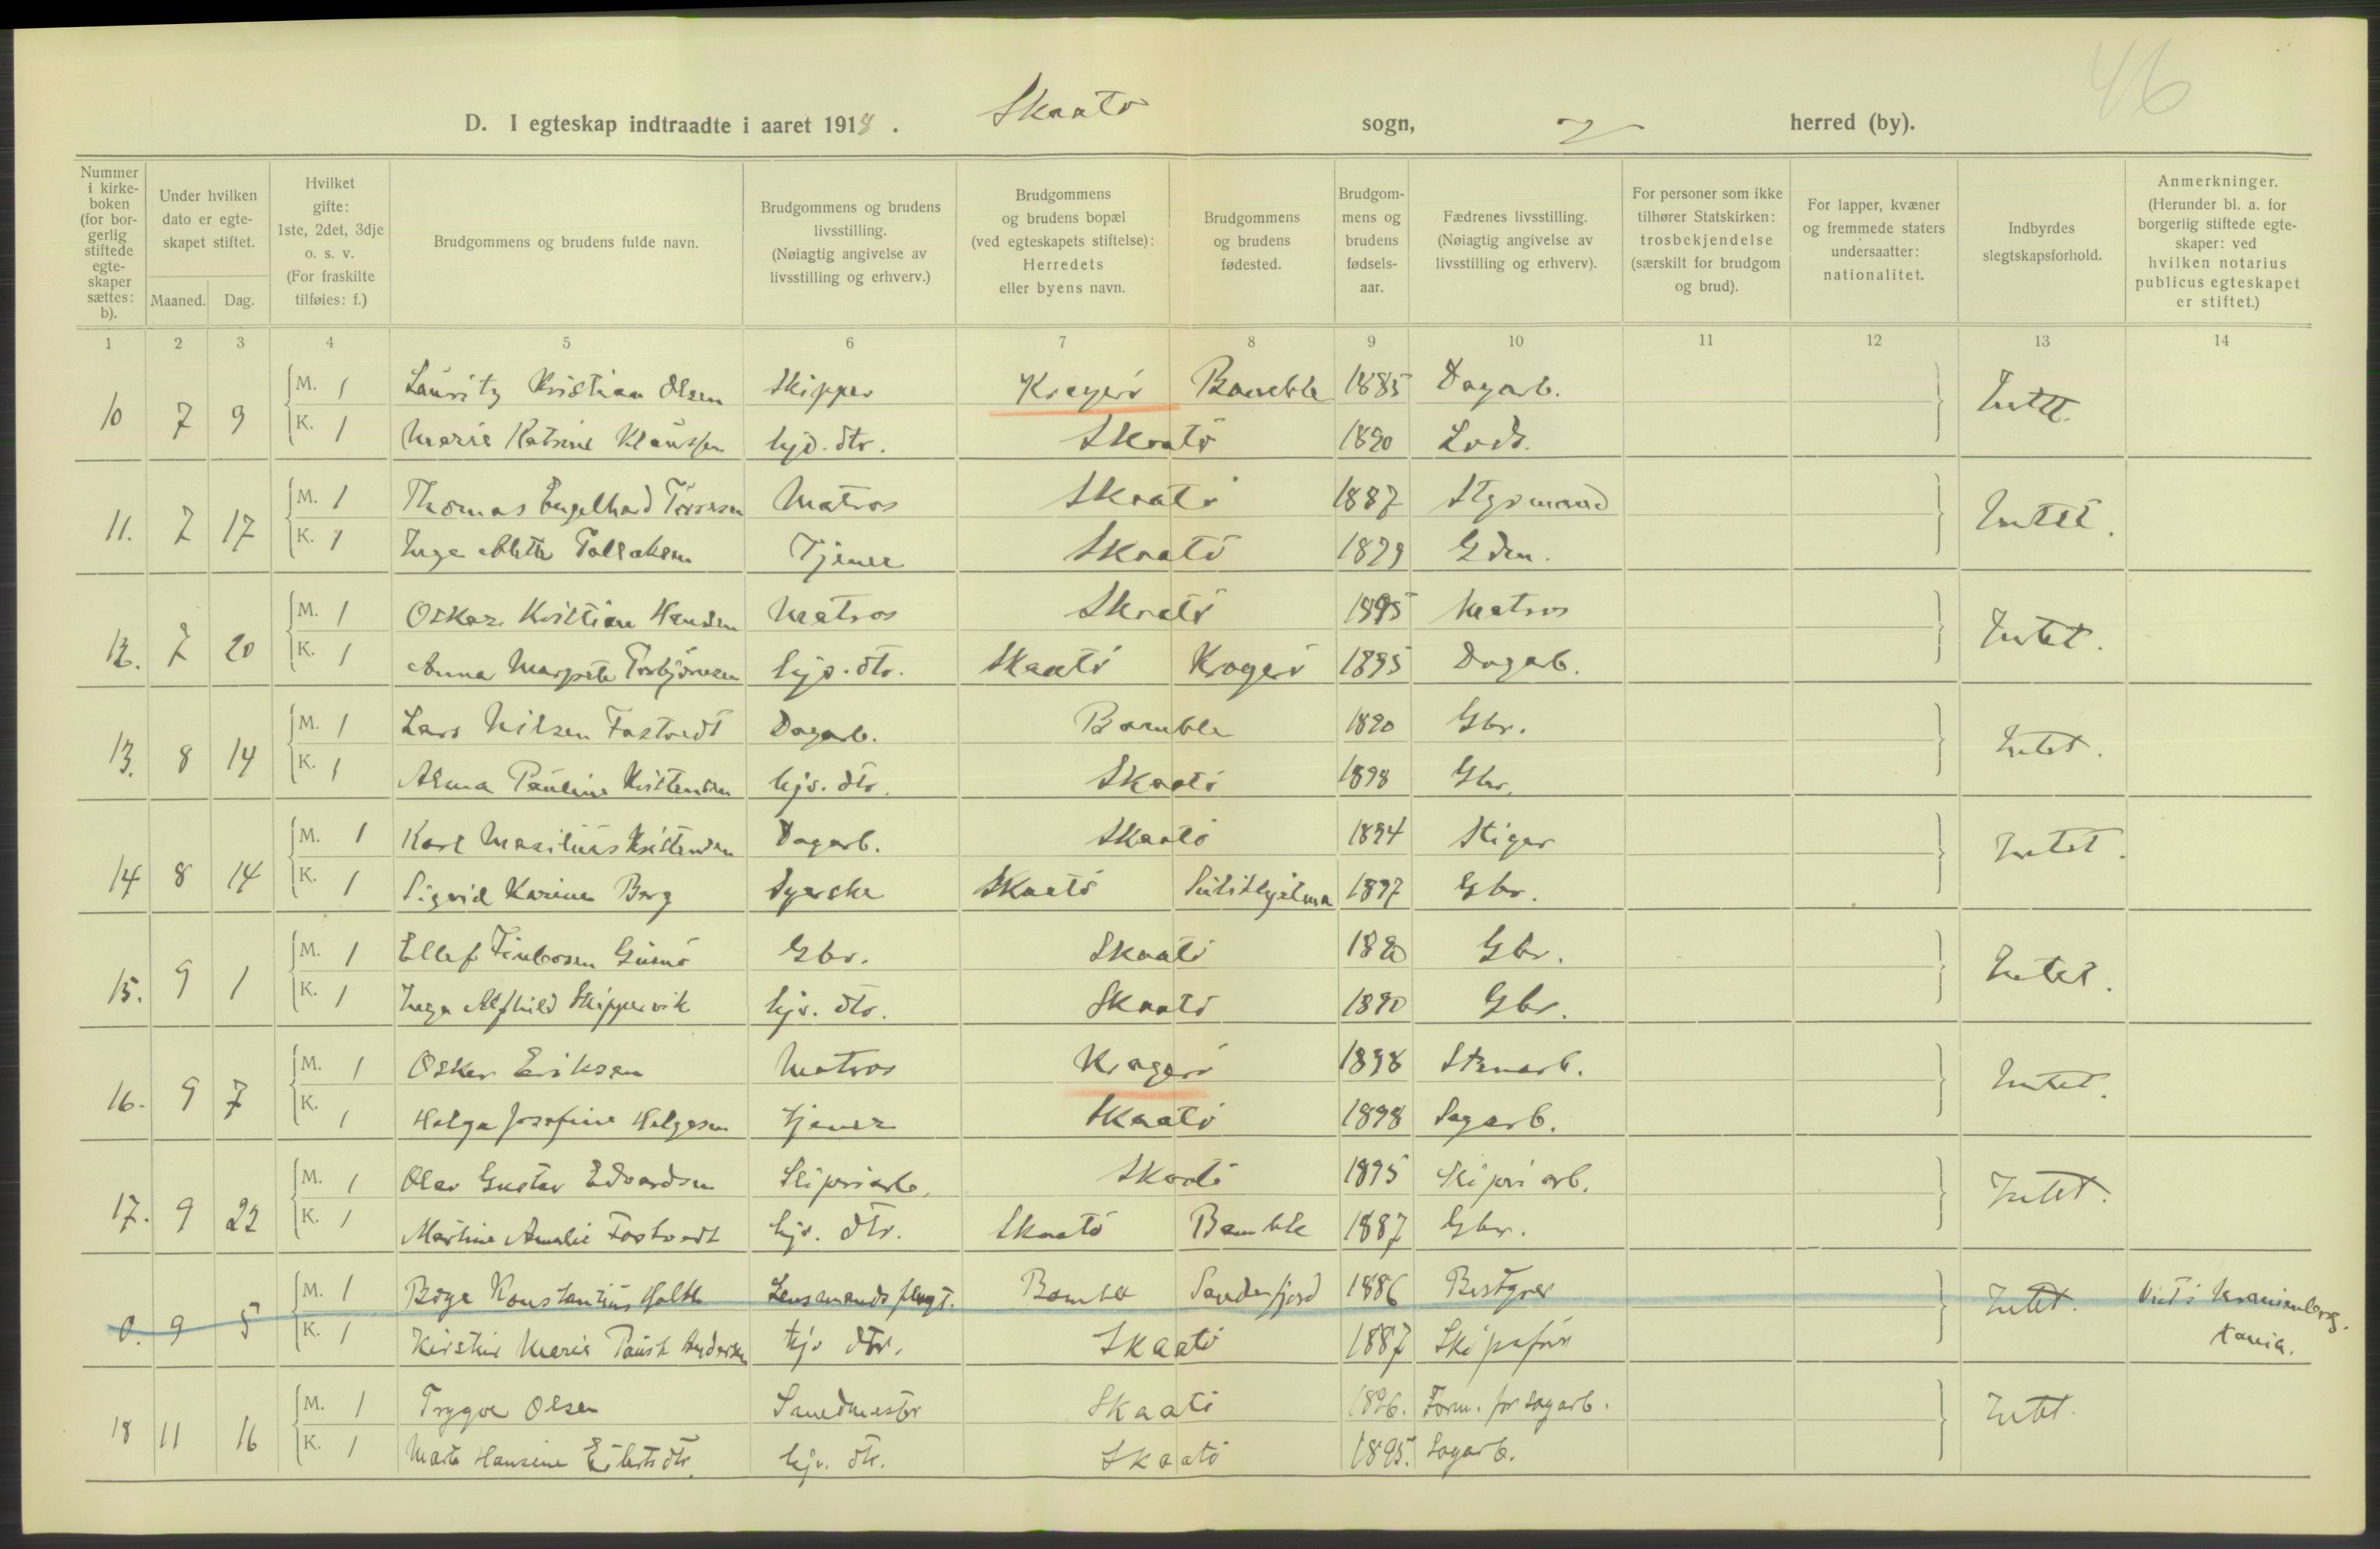 46
D. I egteskap indtraadte i aaret 1918 . Skaatö sogn, herred (by).
Nummer i kirkeboken (for borgerlig stiftede egteskaper sættes: b).
Under hvilken dato er egteskapet stiftet.
Maaned. Dag.
Hvilket gifte: 1ste, 2det, 3dje o. s. v. (For fraskilte tilføies: f.)
Brudgommens og brudens fulde navn.
Brudgommens og brudens livsstilling. (Nøiagtig angivelse av livsstilling og erhverv.)
Brudgommens og brudens bopæl (ved egteskapets stiftelse): Herredets eller byens navn.
Brudgommens og brudens fødested.
Brudgommens og brudens fødselsaar.
Fædrenes livsstilling. (Nøiagtig angivelse av livsstilling og erhverv).
For personer som ikke tilhører Statskirken: trosbekjendelse (særskilt for brudgom og brud).
For lapper, kvæner og fremmede staters undersaatter: nationalitet.
Indbyrdes slegtskapsforhold.
Anmerkninger. (Herunder bl. a. for borgerlig stiftede egteskaper: ved hvilken notarius publicus egteskapet er stiftet.)
1 2 3 4 5 6 7 8 9 10 11 12 13 14
10 7 9 M. 1 Lauritz Kristian Olsen Skipper Kragerö Bamble 1885 Dagarb. Intet.
K. 1 Marie Katrine Klausen hjv. dtr. Skaatö 1890 Lods.
11. 7 17 M. 1 Thomas Engelhard Törresen Matros Skaatö 1887 Styrmand Intet.
K. 1 Inga Alette Tollaksen Tjener Skaatö 1899 Gdm.
12. 7 20 M. 1 Oskar Kristian Hansen Matros Skaatö 1895 Matros Intet.
K. 1 Anna Margrete Torbjörnsen hjv. dtr. Skaatö Kragerö 1895 Dagarb.
13. 8 14 M. 1 Lars Nilsen Fostvedt Dagarb. Bamble 1890 Gbr. Intet.
K. 1 Alma Pauline Kristensen hjv. dtr. Skaatö 1898 Gbr.
14 8 14 M. 1 Karl Maxilius Kristensen Dagarb. Skaatö 1894 Stiger Intet.
K. 1 Sigrid Karine Berg Syerske Skaatö Sulithjelma 1897 Gbr.
15. 9 1 M. 1 Ellef Gumö Gbr. Skaatö Gbr. Intet.
K. 1 Inga Alfhild Skippervik hjv. dtr. Skaatö 1890 Gbr.
16. 9 7 M. 1 Oskar Eriksen Matros Kragerö 1898 Stenarb. Intet.
K. 1 Helga Josefine Helgesen tjener Skaatö 1898 Sagarb.
17. 9 22 M. 1 Olav Gustav Edvardsen Sliperiarb. Skaatö 1895 Sliperiarb. Intet.
K. 1 Martine Amalie Fostvedt hjv. dtr. Skaatö Bamble 1887 Gbr.
0. 9 5 M. 1 Börge Konstantius Holth Lensmandsfuldm. Bamble Sandefjord 1886 Bestyrer Intet. Viet i Kronienborg.
K. 1 Kirstine Marie Andersen hjv dtr. Skaatö 1887 Skipsför Xania.
18 11 16 M. 1 Trygve Olsen Smedmester Skaatö 1896. Form. for sagarb. Intet.
K. 1 Marte Hansine Eilertsdtr. hjv. dtr. Skaatö 1895. Sagarb.